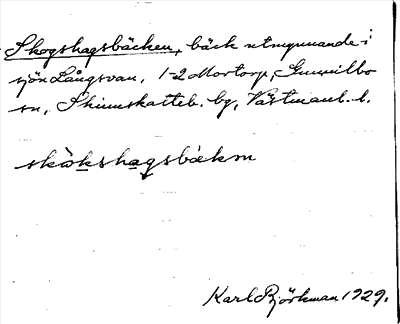 Skogshagsbäcken, bäck utmynnande i
sjön Långsvan, 1-2 Mortorp, Gunnilbo
sn, Skinnskatteb. bg, Västmanl. l.
skòkshagsbäkən
Karl Björkman 1929.